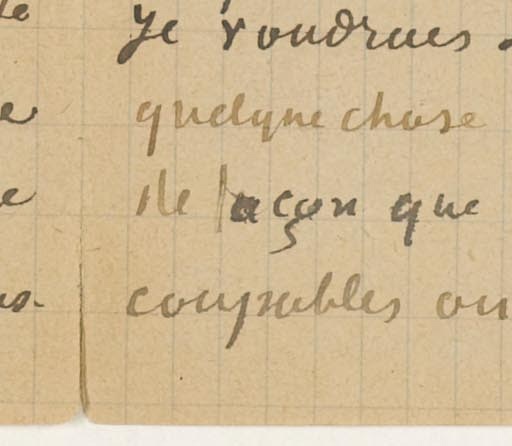 Je voudrais
quelque chose
de façon que
coupables ou